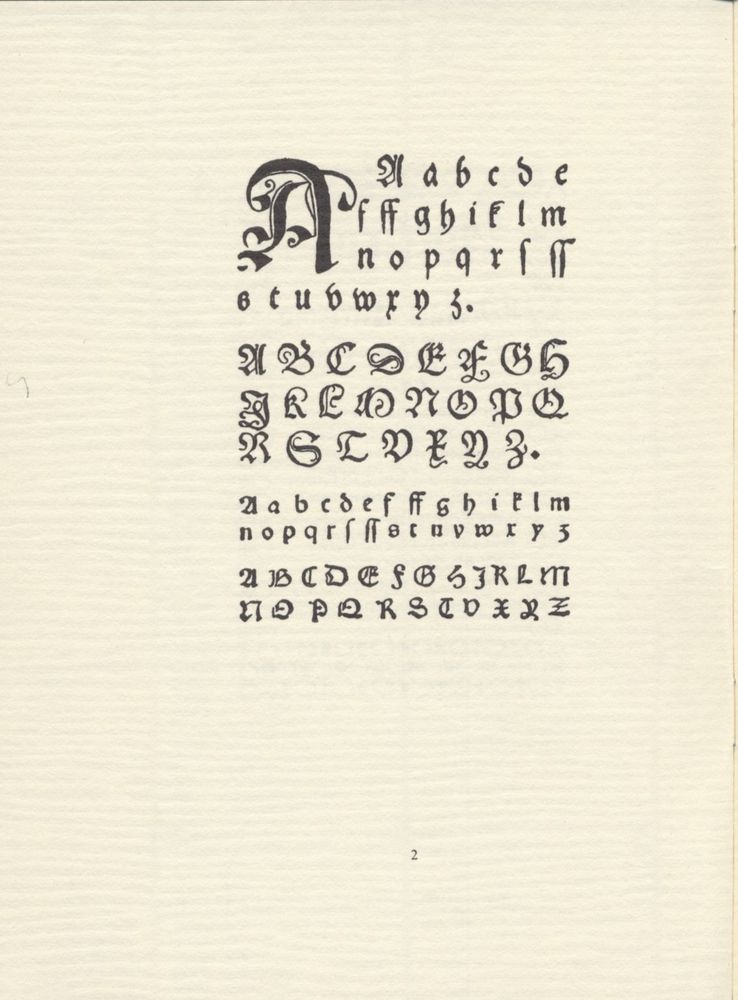 A A a b c d e
f ff g h i k l m
n o p q r ſ ſſ
s t u v w x y z.
A B C D E F G H
J K L M N O P Q
R S T V X Y Z.
A a b c d e f ff g h i k l m
n o p q r ſ ſſ s t u v w x y z
A B C D E F G H J K L M
N O P Q R S T V X Y Z
2